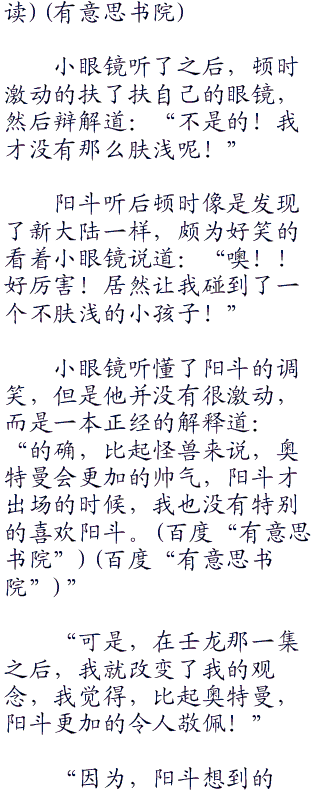 读) (有意思书院)
小眼镜听了之后，顿时
激动的扶了扶自己的眼镜，
然后辩解道：“不是的！我
才没有那么肤浅呢！”
阳斗听后顿时像是发现
了新大陆一样，颇为好笑的
看着小眼镜说道：“噢！！
好厉害！居然让我碰到了一
个不肤浅的小孩子！”
小眼镜听懂了阳斗的调
笑，但是他并没有很激动，
而是一本正经的解释道：
“的确，比起怪兽来说，奥
特曼会更加的帅气，阳斗才
出场的时候，我也没有特别
的喜欢阳斗。(百度“有意思
书院”) (百度“有意思书
院”)”
“可是，在壬龙那一集
之后，我就改变了我的观
念，我觉得，比起奥特曼，
阳斗更加的令人敬佩！”
“因为，阳斗想到的